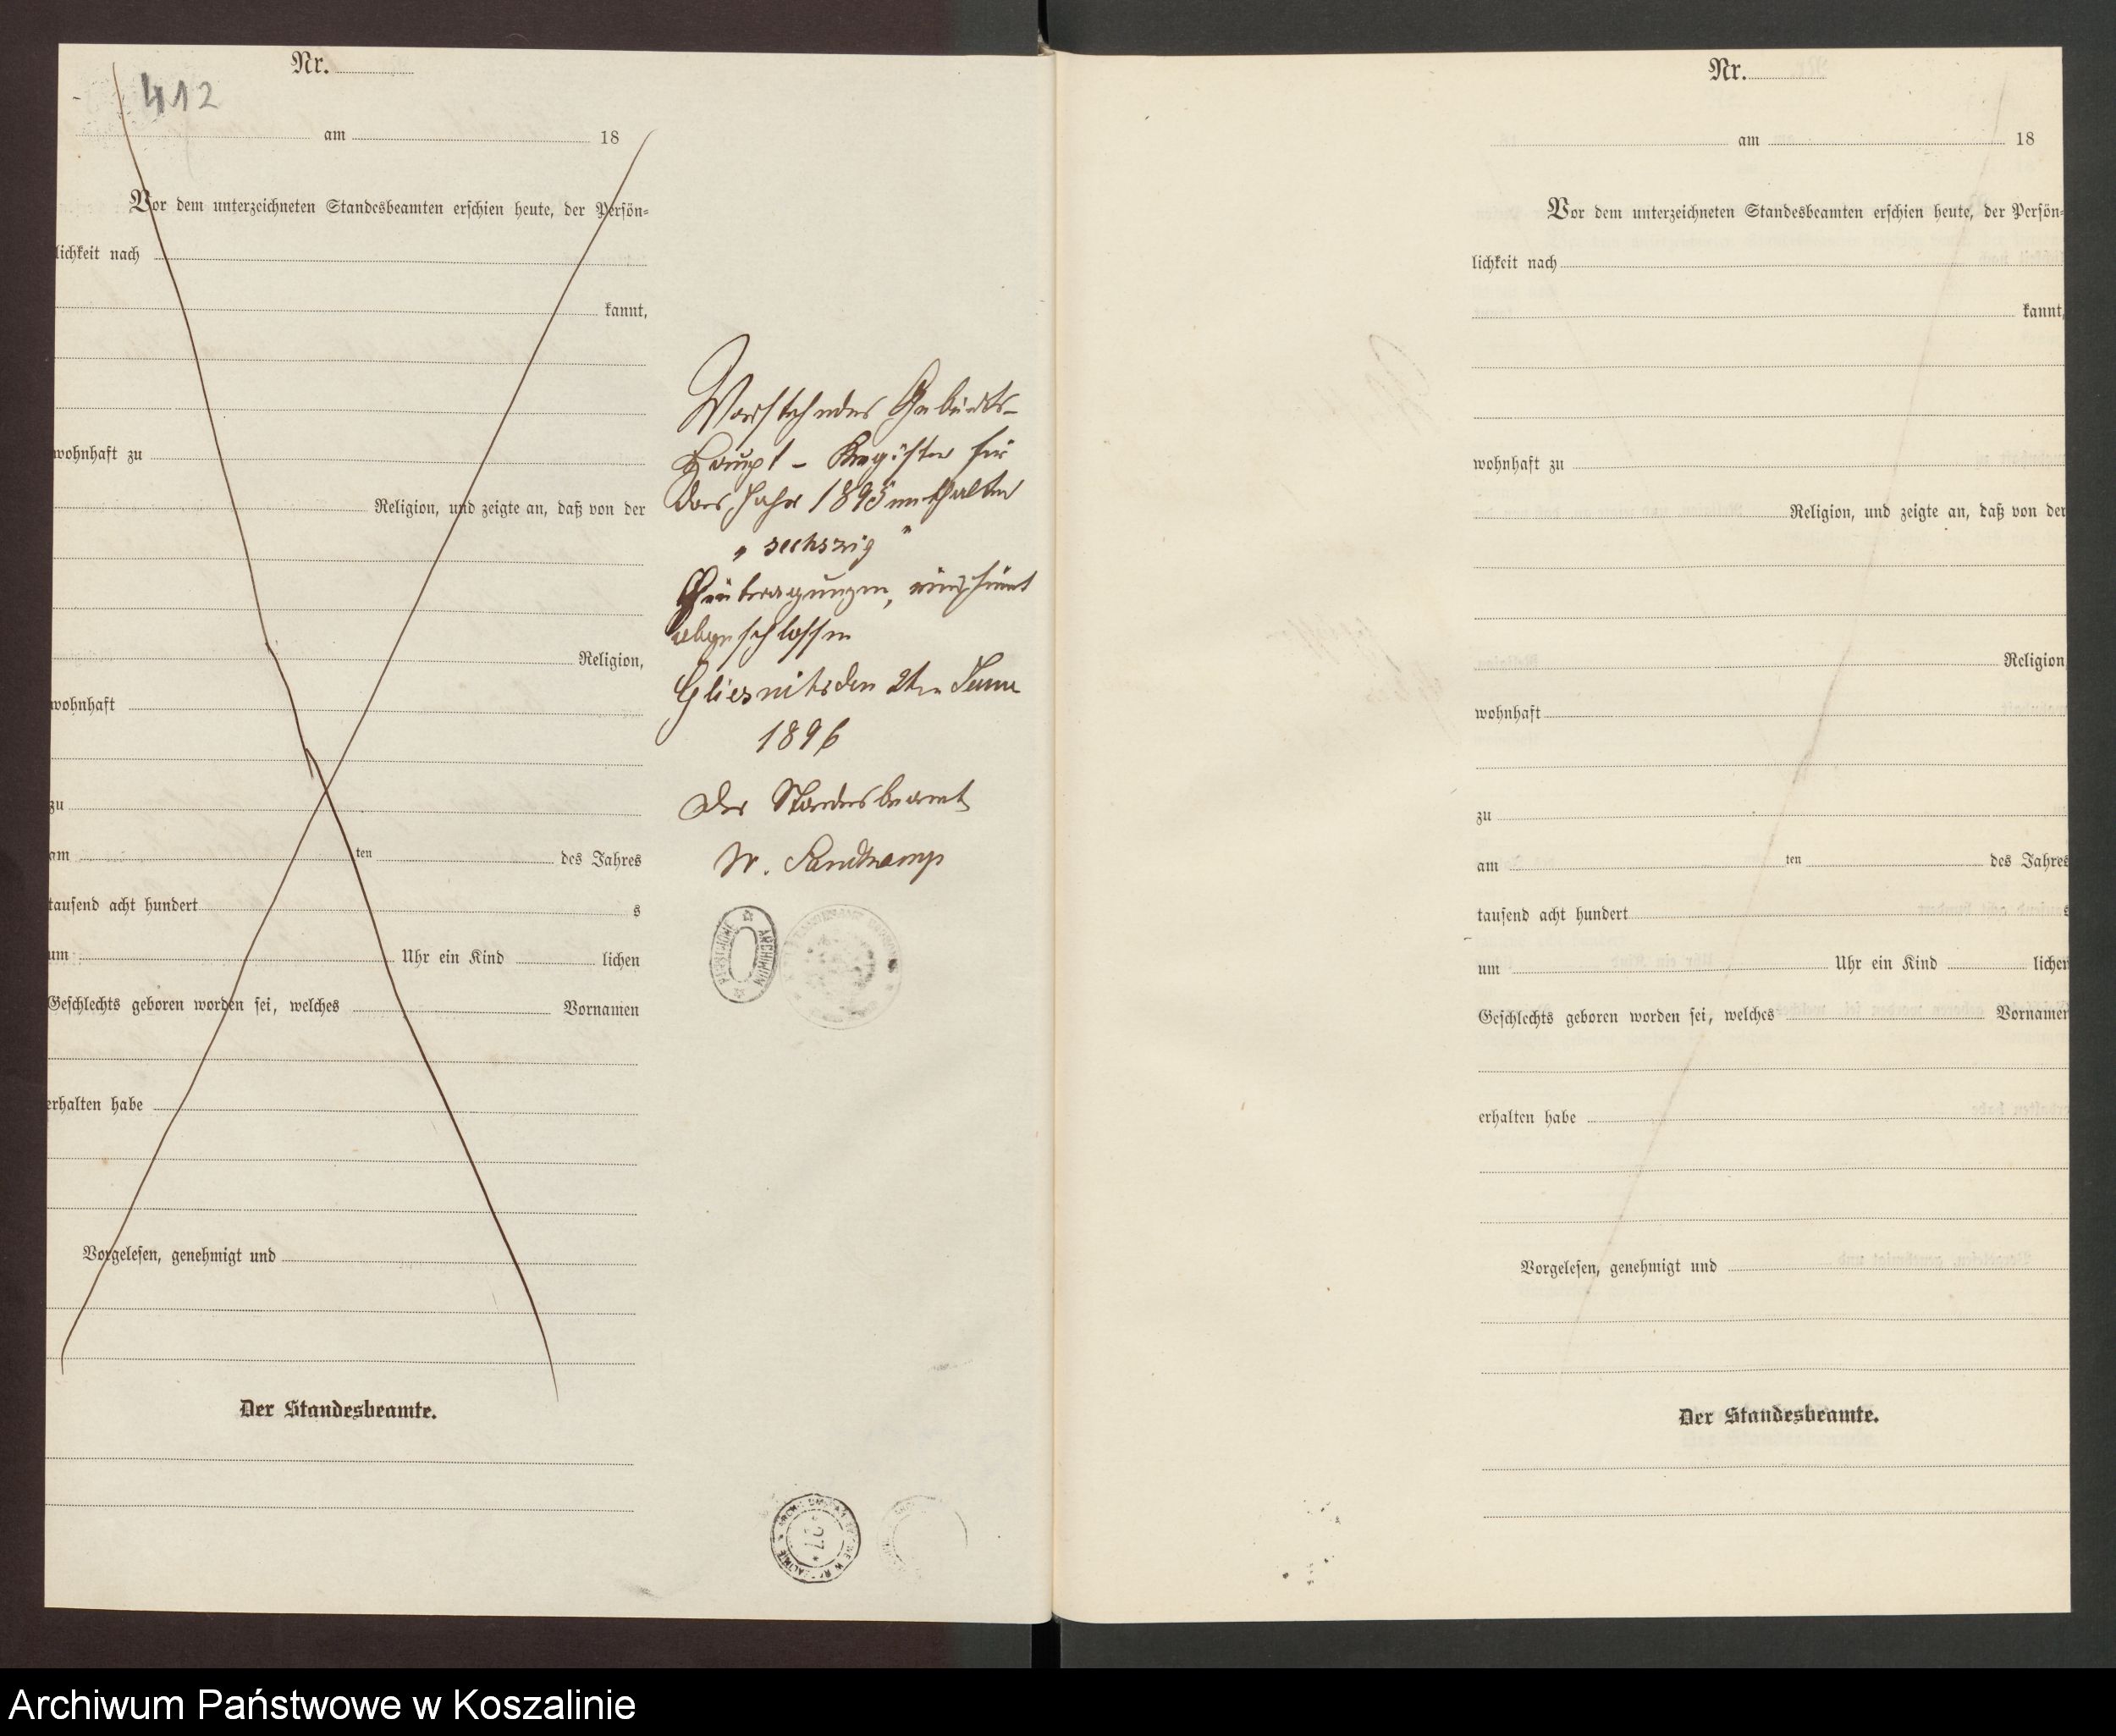 Nr.
412
am 18
Vor dem unterzeichneten Standesbeamten erschien heute, der Persön-
lichkeit nach
kannt,
wohnhaft zu
Religion, und zeigte an, daß von der
Religion,
wohnhaft
zu
am ten des Jahres
tausend acht hundert s
um Uhr ein Kind lichen
Geschlechts geboren worden sei, welches Vornamen
erhalten habe
Vorgelesen, genehmigt und
Der Standesbeamte.
Vorstehendes Geburts-
Haupt - Register für
das Jahr 1895 enthalten
" sechszig "
Eintragungen,
abgeschlossen
den 2ten
1896
Der Standesbeamte
W. Sandkamp
ARCHIWUM
PAŃSTWOWE
27
Nr.
am 18
Vor dem unterzeichneten Standesbeamten erschien heute, der Persön-
lichkeit nach
kannt,
wohnhaft zu
Religion, und zeigte an, daß von der
Religion
wohnhaft
zu
am ten des Jahres
tausend acht hundert s
um Uhr ein Kind lichen
Geschlechts geboren worden sei, welches Vornamen
erhalten habe
Vorgelesen, genehmigt und
Der Standesbeamte.
Archiwum Państwowe w Koszalinie